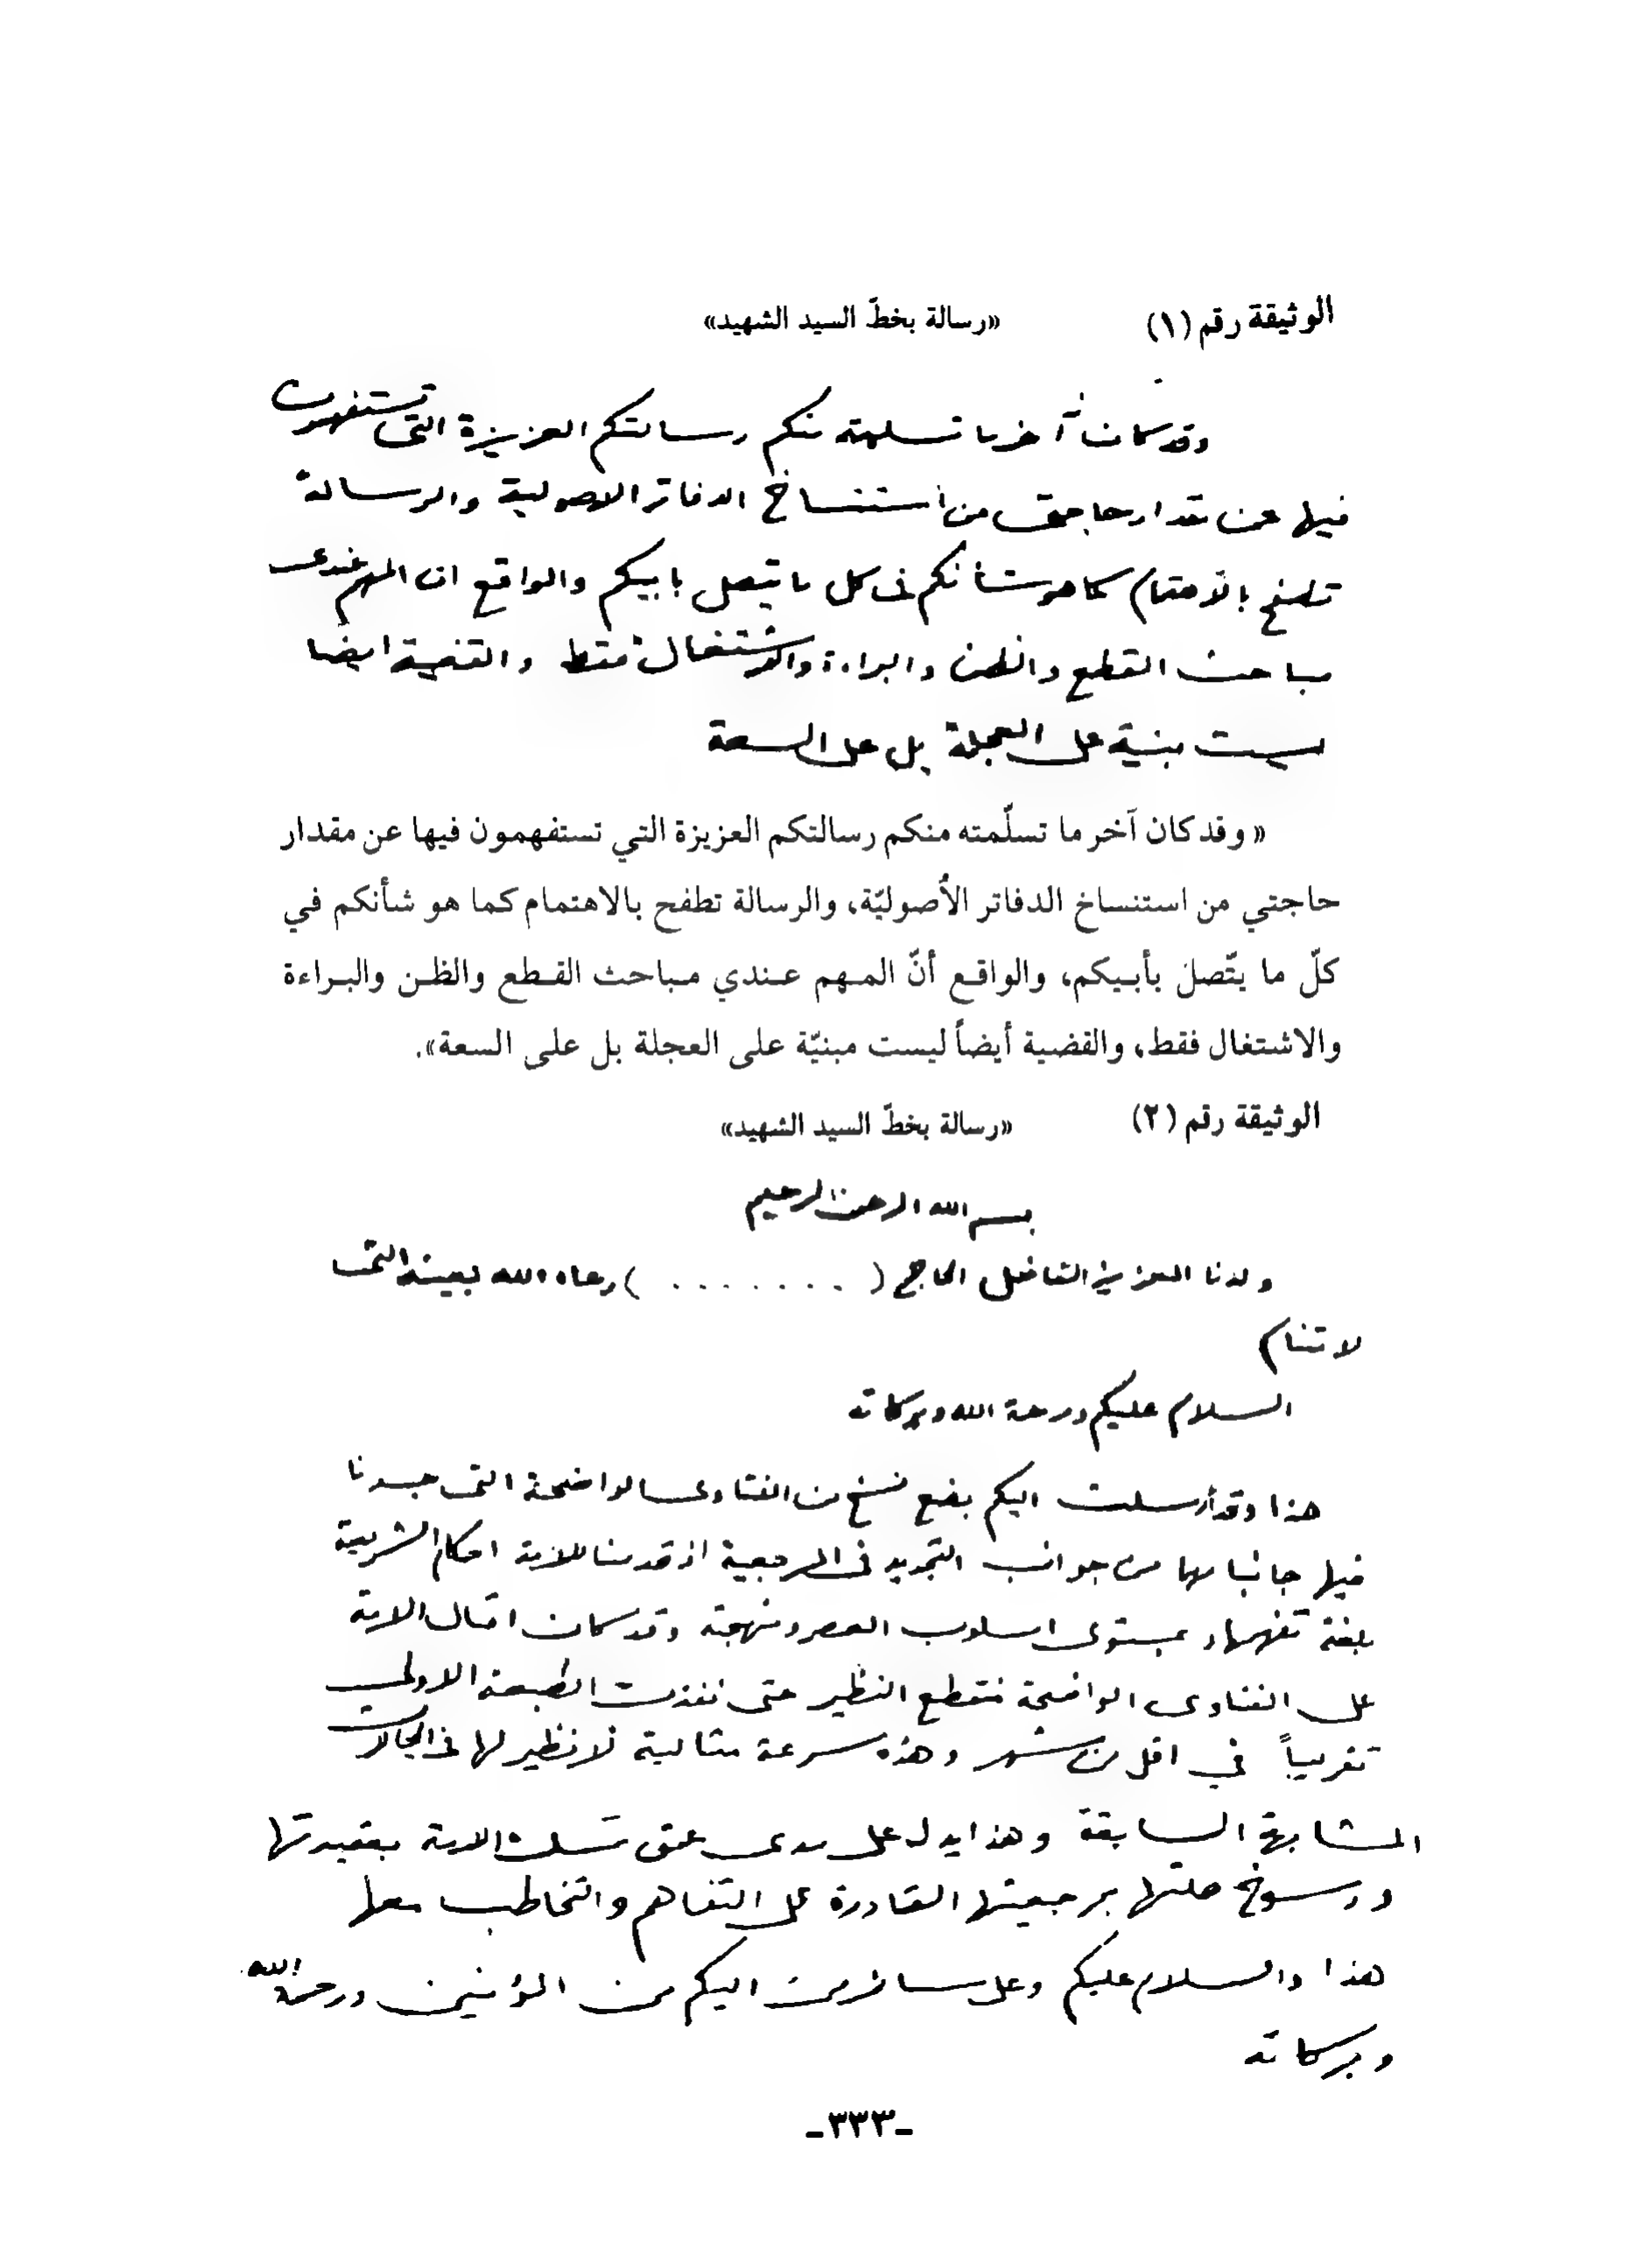 الوثيقة رقم (١) «رسالة بخطّ السيد الشهيد»
وقد كان آخر ما تسلمته منكم رسالتكم العزيزة التي تستفهمون
فيها عن مقدار حاجتي من استنساخ الدفاتر الاصولية والرسالة
تطفح بالاهتمام كما هو شأنكم في كل ما يتصل بابيكم والواقع ان المهم عندي
مباحث القطع والظن والبراءة والاشتغال فقط والقضية ايضا
ليست مبنية على العجلة بل على السعة
«وقد كان آخر ما تسلّمته منكم رسالتكم العزيزة التي تستفهمون فيها عن مقدار
حاجتي من استنساخ الدفاتر الأُصوليّة، والرسالة تطفح بالاهتمام كما هو شأنكم في
كلّ ما يتّصل بأبيكم، والواقع أنّ المهم عندي مباحث القطع والظن والبراءة
والاشتغال فقط، والقضية أيضاً ليست مبنيّة على العجلة بل على السعة».
الوثيقة رقم (٢) «رسالة بخطّ السيد الشهيد»
بسم الله الرحمن الرحيم
ولدنا العزيز الفاضل الحاج ( . . . . . . . ) رعاه الله بعينه التي
لا تنام
السلام عليكم ورحمة الله وبركاته
هذا وقد أرسلت اليكم بضع نسخ من الفتاوى الواضحة التي جسدنا
فيها جانبا مهما من جوانب التجديد في المرجعية اذ قدمنا للامة احكام الشريعة
بلغة تفهمها وبمستوى اسلوب العصر ومنهجته وقد كان اقبال الامة
على الفتاوى الواضحة منقطع النظير حتى نفذت الطبعة الاولى
تقريباً في اقل من شهر وهذه سرعة مثالية لا نظير لها في المجالات
المشابهة السابقة وهذا يدل على مدى عمق تمسك الامة بعقيدتها
ورسوخ صلتها بمرجعيتها القادرة على التفاهم والتخاطب معها
هذا والسلام عليكم وعلى سائر من اليكم من المؤمنين ورحمة الله
وبركاته
-٣٣٣-